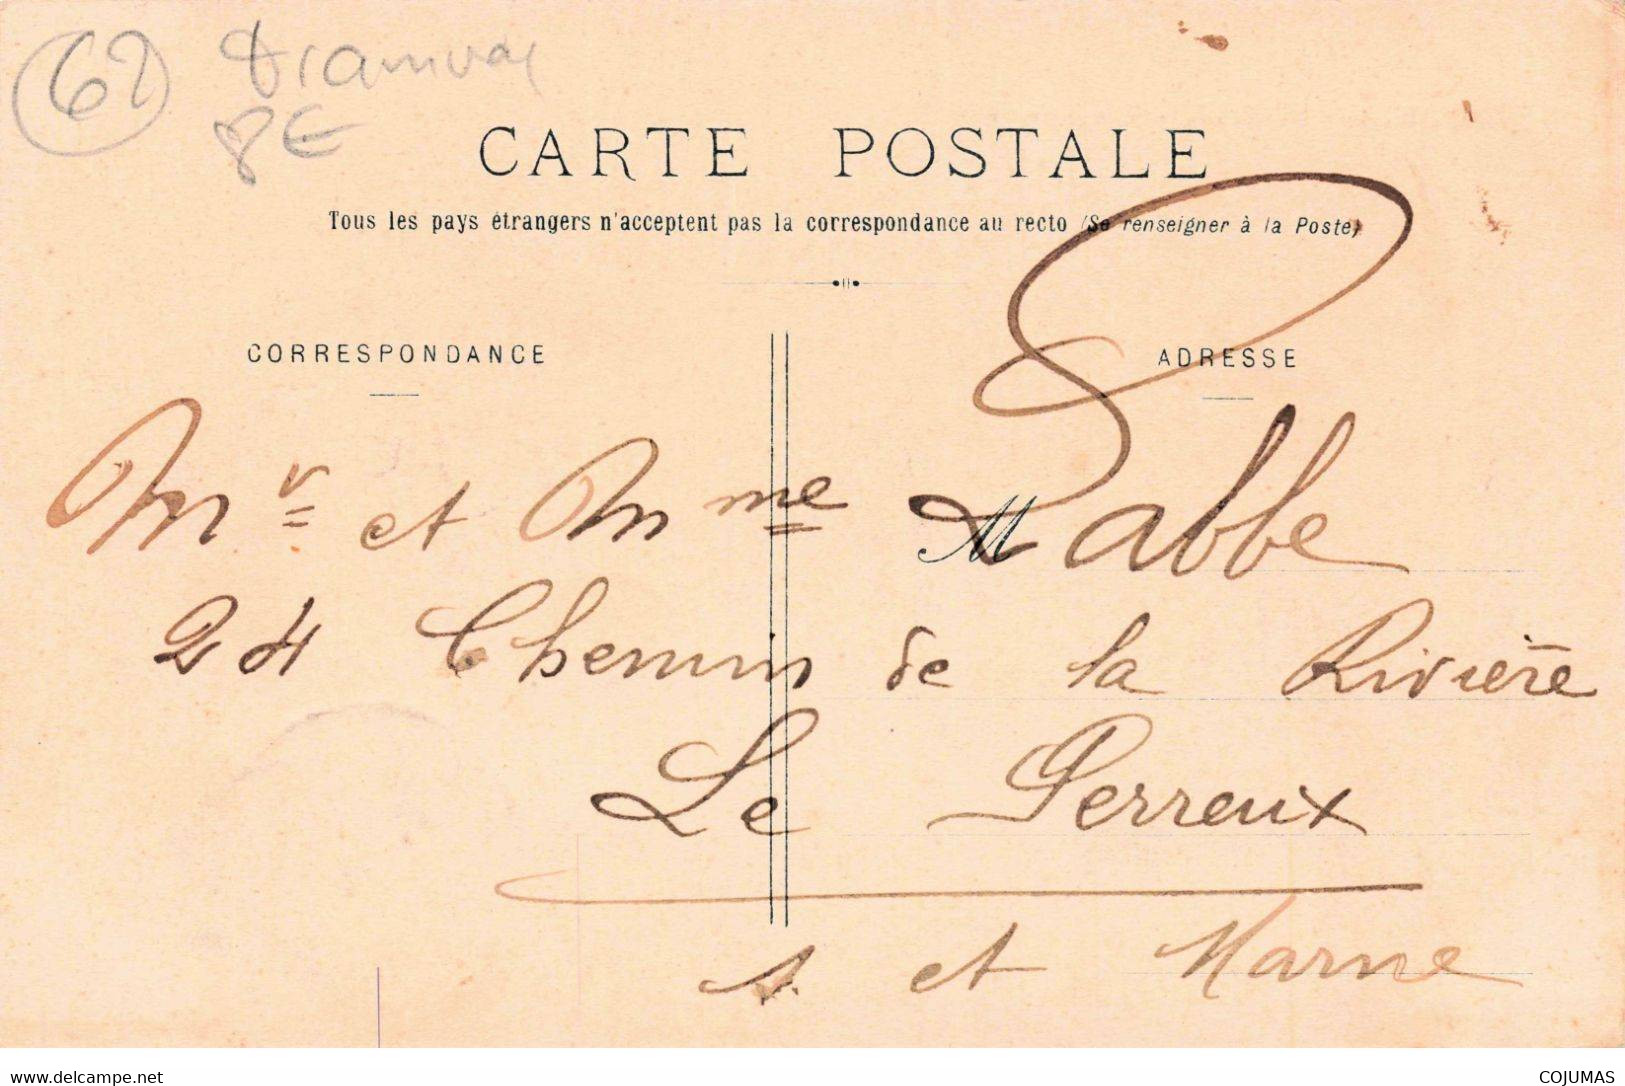 62 Tramway
8€
CARTE POSTALE
Tous les pays étrangers n'acceptent pas la correspondance au recto (Se renseigner à la Poste)
CORRESPONDANCE
ADRESSE
M
Mr et Mme Labbe
24 Chemin de la Rivière
Le Perreux
S. et Marne
www.delcampe.net
COJUMAS